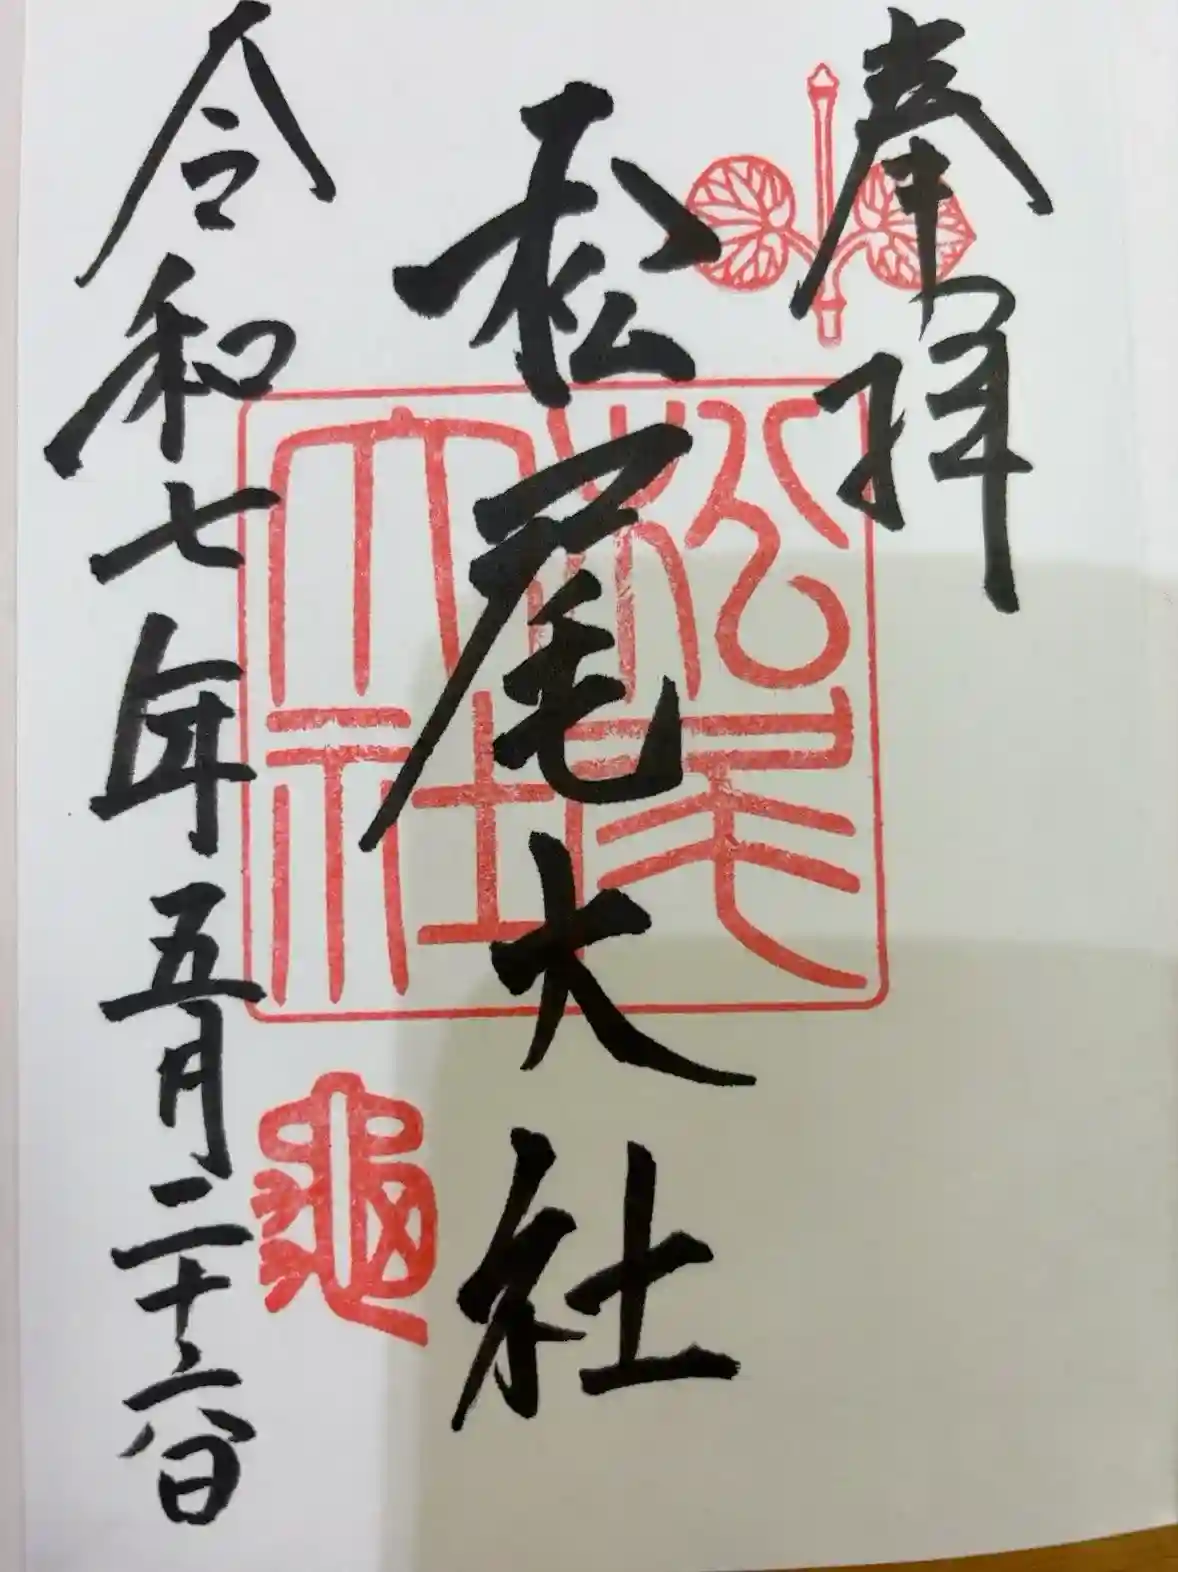 奉拝
松尾大社
松尾大社
亀
令和七年五月二十六日